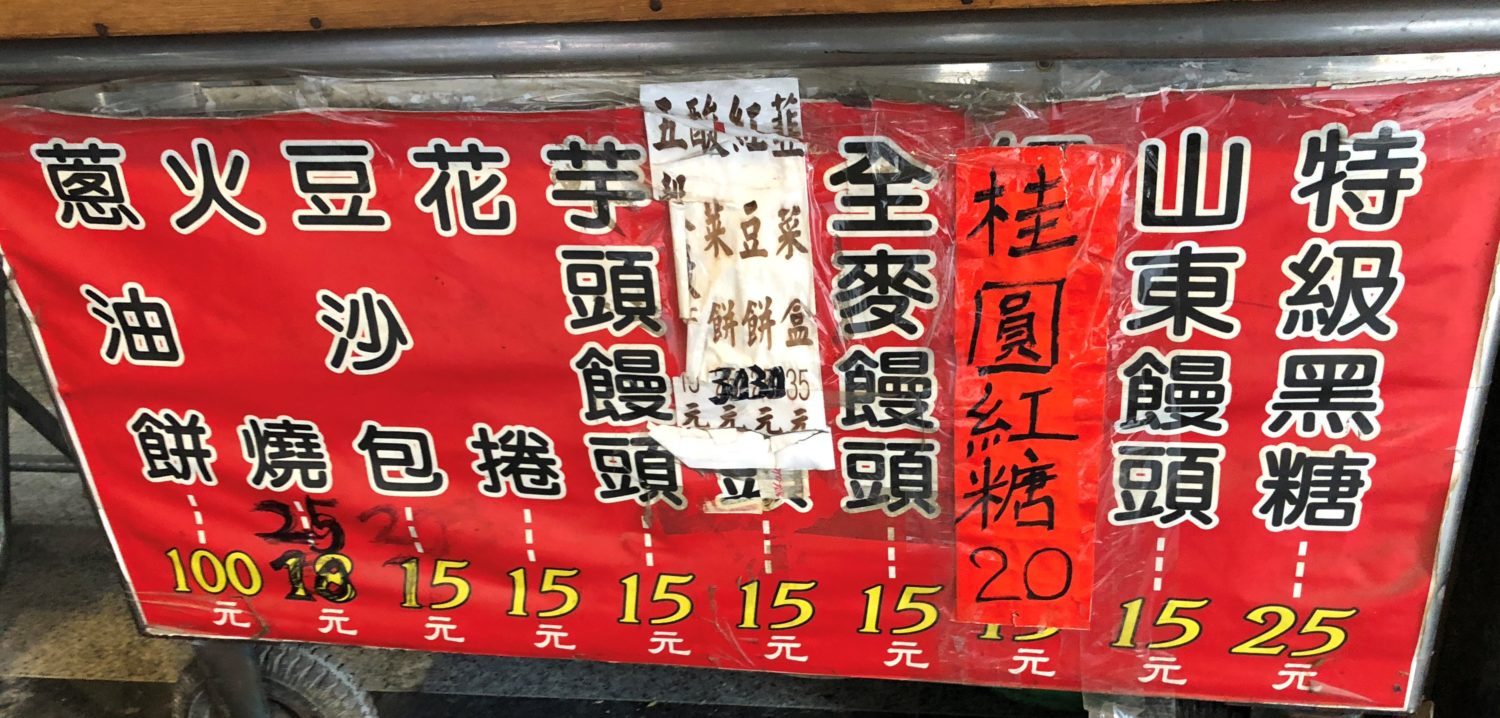 特級黑糖25元
山東饅頭15元
桂圓紅糖20
元
全麥饅頭15元
韭菜盒35元
紅豆餅30元
酸菜餅30元
五
元
頭15元
芋頭饅頭15元
花捲15元
豆沙包15元
火燒25元
蔥油餅100元